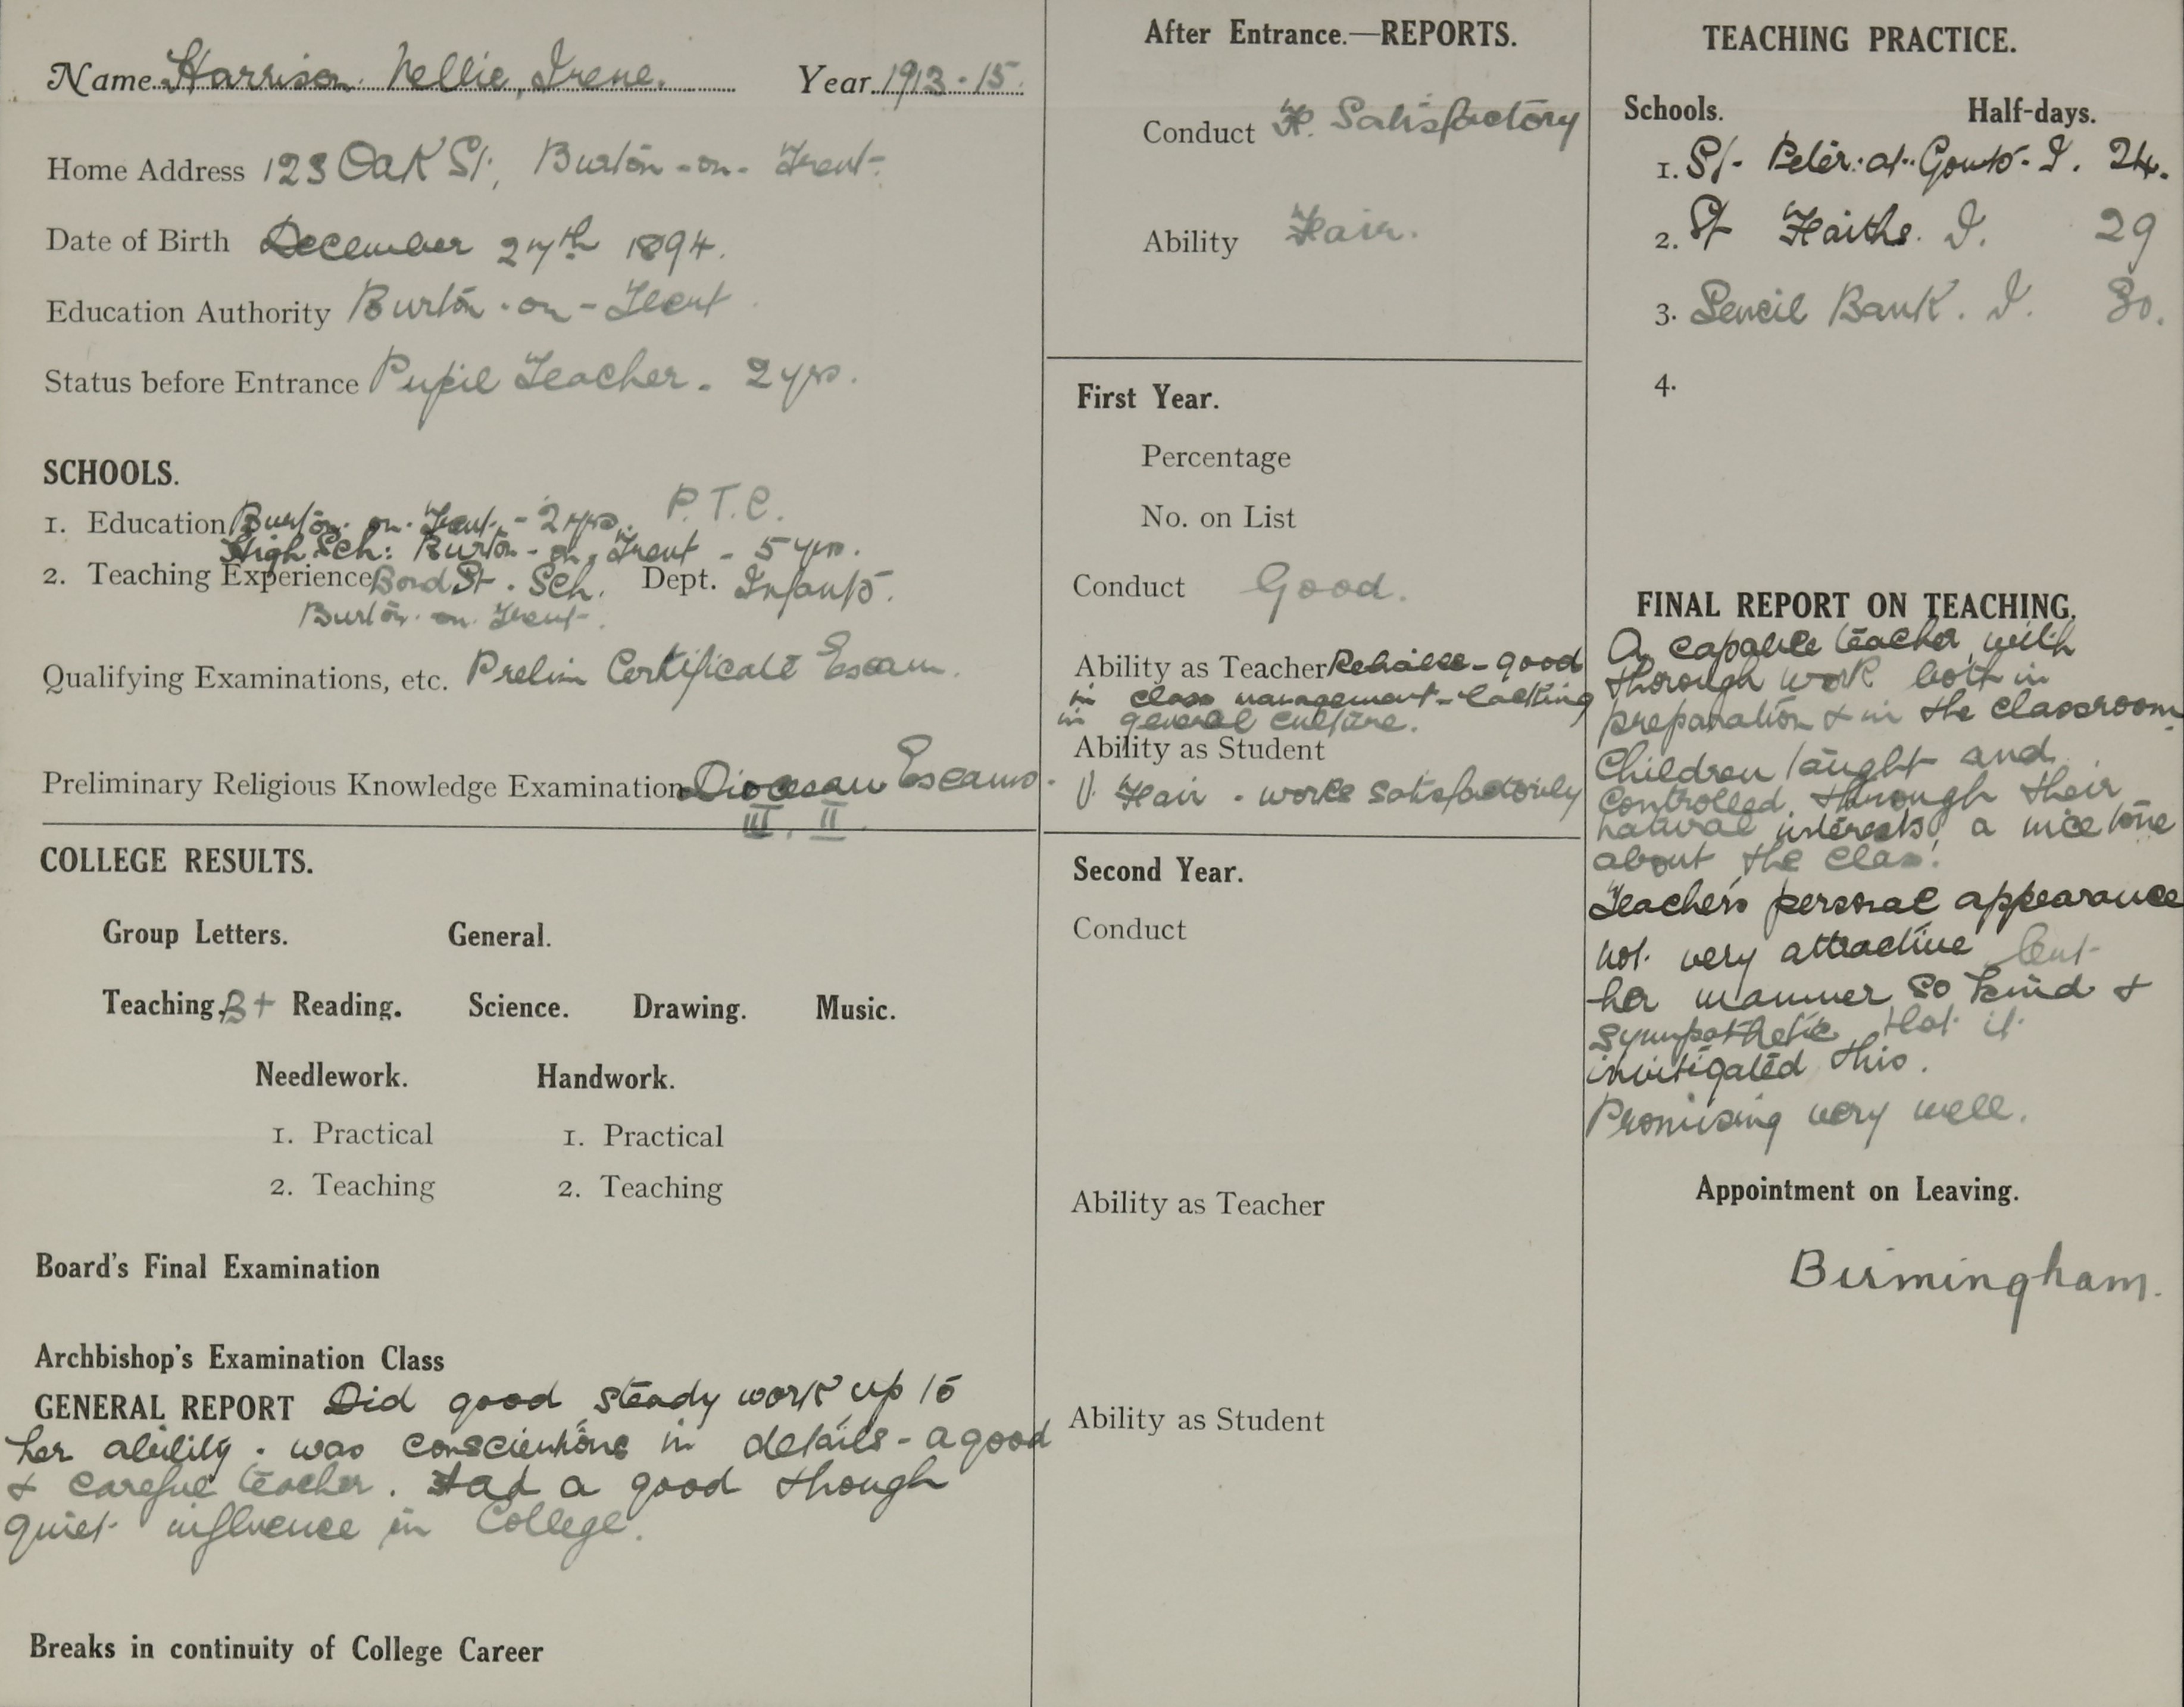 Name Harrison Nellie, Irene. Year 1913-15.
Home Address 123 Oak St, Burton-on-Trent.
Date of Birth December 27th 1894.
Education Authority Burton-on-Trent.
Status before Entrance Pupil Teacher - 2 yrs.
SCHOOLS.
1. Education Burton-on-Trent - 2 yrs. P.T.C.
High Sch: Burton-on-Trent - 5 yrs.
2. Teaching Experience Bond St. Sch. Dept. Infants.
Burton-on-Trent.
Qualifying Examinations, etc. Prelim Certificate Exam.
Preliminary Religious Knowledge Examination Diocesan Exams.
III. II.
COLLEGE RESULTS.
Group Letters. General.
Teaching. B+ Reading. Science. Drawing. Music.
Needlework. Handwork.
1. Practical 1. Practical
2. Teaching 2. Teaching
Board's Final Examination
Archbishop's Examination Class
GENERAL REPORT Did good steady work up to
her ability. was conscientious in details - a good
& careful teacher. Had a good though
quiet influence in College.
Breaks in continuity of College Career
After Entrance.—REPORTS.
Conduct Satisfactory
Ability Fair.
First Year.
Percentage
No. on List
Conduct Good.
Ability as Teacher Reliable - good
in class management - lacking
in general culture.
Ability as Student
V. Fair - works satisfactorily
Second Year.
Conduct
Ability as Teacher
Ability as Student
TEACHING PRACTICE.
Schools. Half-days.
1. St. Peter-at-Gowts - I. 24.
2. St Faiths. I. 29
3. Sencil Bank. I. 30.
4.
FINAL REPORT ON TEACHING.
A capable teacher, with
thorough work both in
preparation & in the classroom.
Children taught and
controlled through their
natural interests, a nice tone
about the class.
Teacher's personal appearance
not very attractive but
her manner so kind &
sympathetic that it
invitigated this.
Promising very well.
Appointment on Leaving.
Birmingham.